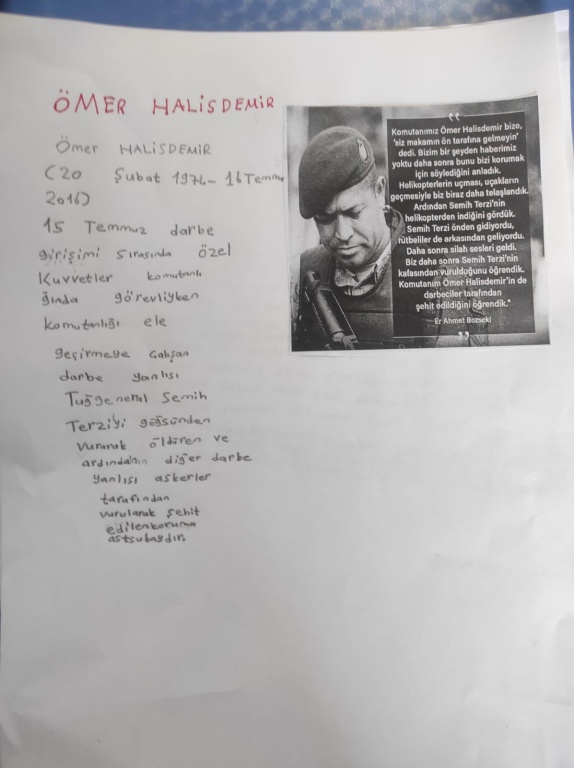 ÖMER HALİSDEMİR
Ömer HALISDEMİR
(20 Şubat 1974- 16 Temmu
2016)
15 Temmuz darbe
girişimi sırasında özel
Kuvvetler komutanlı
ğında görevliyken
komutanlığı ele
geçirmeye Çalışan
darbe yanlısı
Tuğgeneral Semih
Terzi'yi göğsünden
Vurarak öldüren ve
ardında'nın diğer darbe
yanlısı askerler
tarafından
vurularak şehit
edilen koruma
astsubaydır.
“
Komutanımız Ömer Halisdemir bize,
'siz makamın ön tarafına gelmeyin'
dedi. Bizim bir şeyden haberimiz
yoktu daha sonra bunu bizi korumak
için söylediğini anladık.
Helikopterlerin uçması, uçakların
geçmesiyle biz biraz daha telaşlandık.
Ardından Semih Terzi'nin
helikopterden indiğini gördük.
Semih Terzi önden gidiyordu,
rütbeliler de arkasından geliyordu.
Daha sonra silah sesleri geldi.
Biz daha sonra Semih Terzi'nin
kafasından vurulduğunu öğrendik.
Komutanım Ömer Halisdemir'in de
darbeciler tarafından
şehit edildiğini öğrendik."
Er Ahmet Bozseki
”